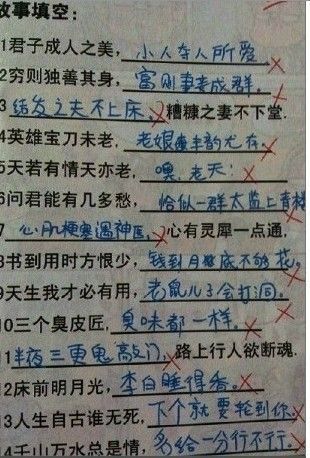 故事填空：
1君子成人之美，小人夺人所爱。
2穷则独善其身，富则妻妾成群。
3结发之夫不上床，糟糠之妻不下堂.
4英雄宝刀未老，老娘丰韵尤存。
5天若有情天亦老，嘿.老天：
6问君能有几多愁，恰似一群太监上青楼
7心肌梗塞遇神医，心有灵犀一点通，
8书到用时方恨少，钱到月底不够花。
9天生我才必有用，老鼠儿子会打洞。
10三个臭皮匠，臭味都一样。
11半夜三更鬼敲门，路上行人欲断魂.
12床前明月光，李白睡得香。
13人生自古谁无死，下个就要轮到你
14千山万水总是情，多给一分行不行。